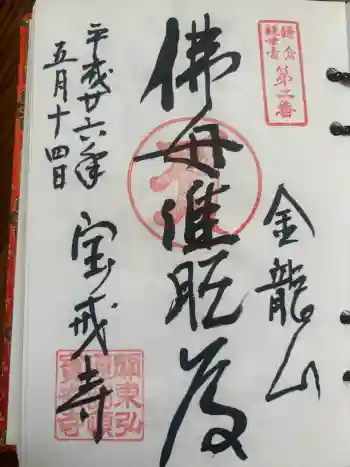 鎌倉
觀世音
第二番
金龍山
佛母准胝尊
平成廿六年
五月十四日
宝戒寺